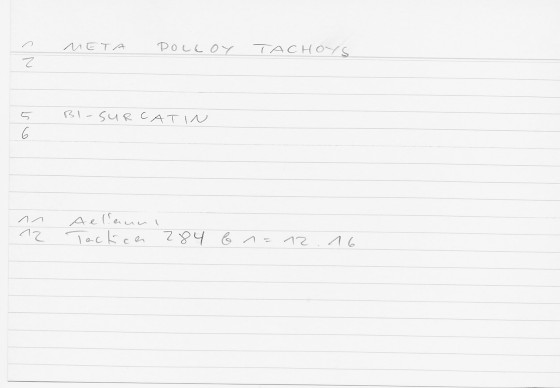 1 META POLLOY TACHOYS
2
5 BI-SURCATIN
6
11 Aeliani
12 Tactica 284 G 1 = 12.16